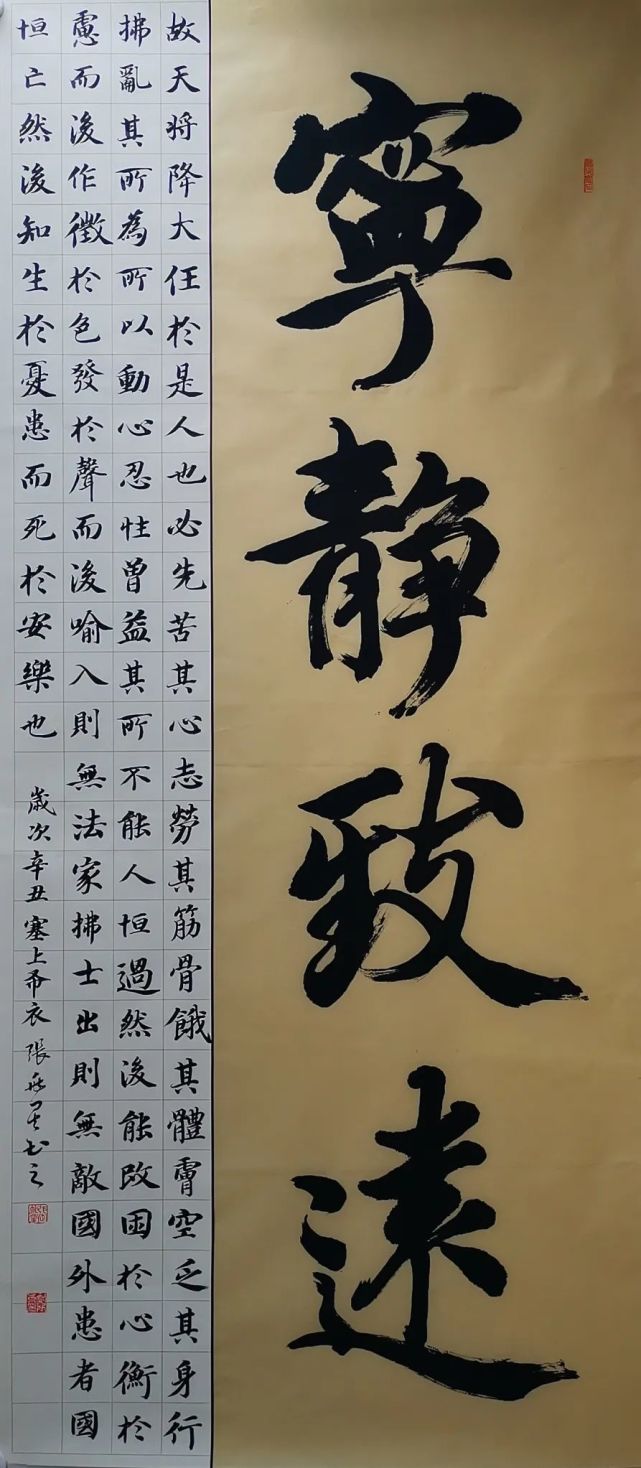 寧
静
致
遠
故天将降大任於是人也必先苦其心志勞其筋骨餓其體膚空乏其身行
拂亂其所為所以動心忍性曾益其所不能人恒過然後能改困於心衡於
慮而後作徵於色發於聲而後喻入則無法家拂士出則無敵國外患者國
恒亡然後知生於憂患而死於安樂也
歲次辛丑塞上布衣張书之